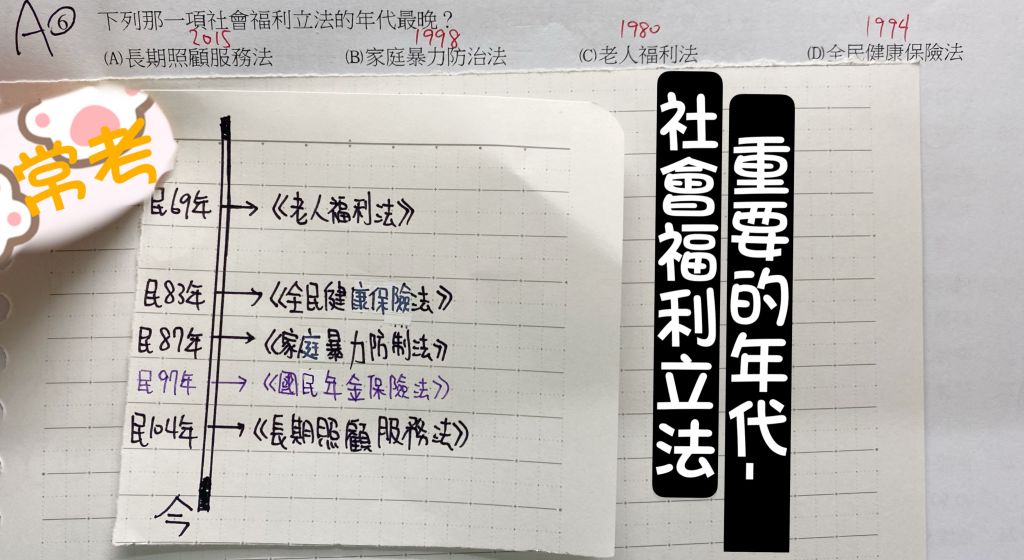 A ⑥ 下列那一項社會福利立法的年代最晚？
2015 1998 1980 1994
(A)長期照顧服務法 (B)家庭暴力防治法 (C)老人福利法 (D)全民健康保險法
常考
重要的年代-
社會福利立法
民69年→《老人福利法》
民83年→《全民健康保險法》
民87年→《家庭暴力防制法》
民97年→《國民年金保險法》
民104年→《長期照顧服務法》
今